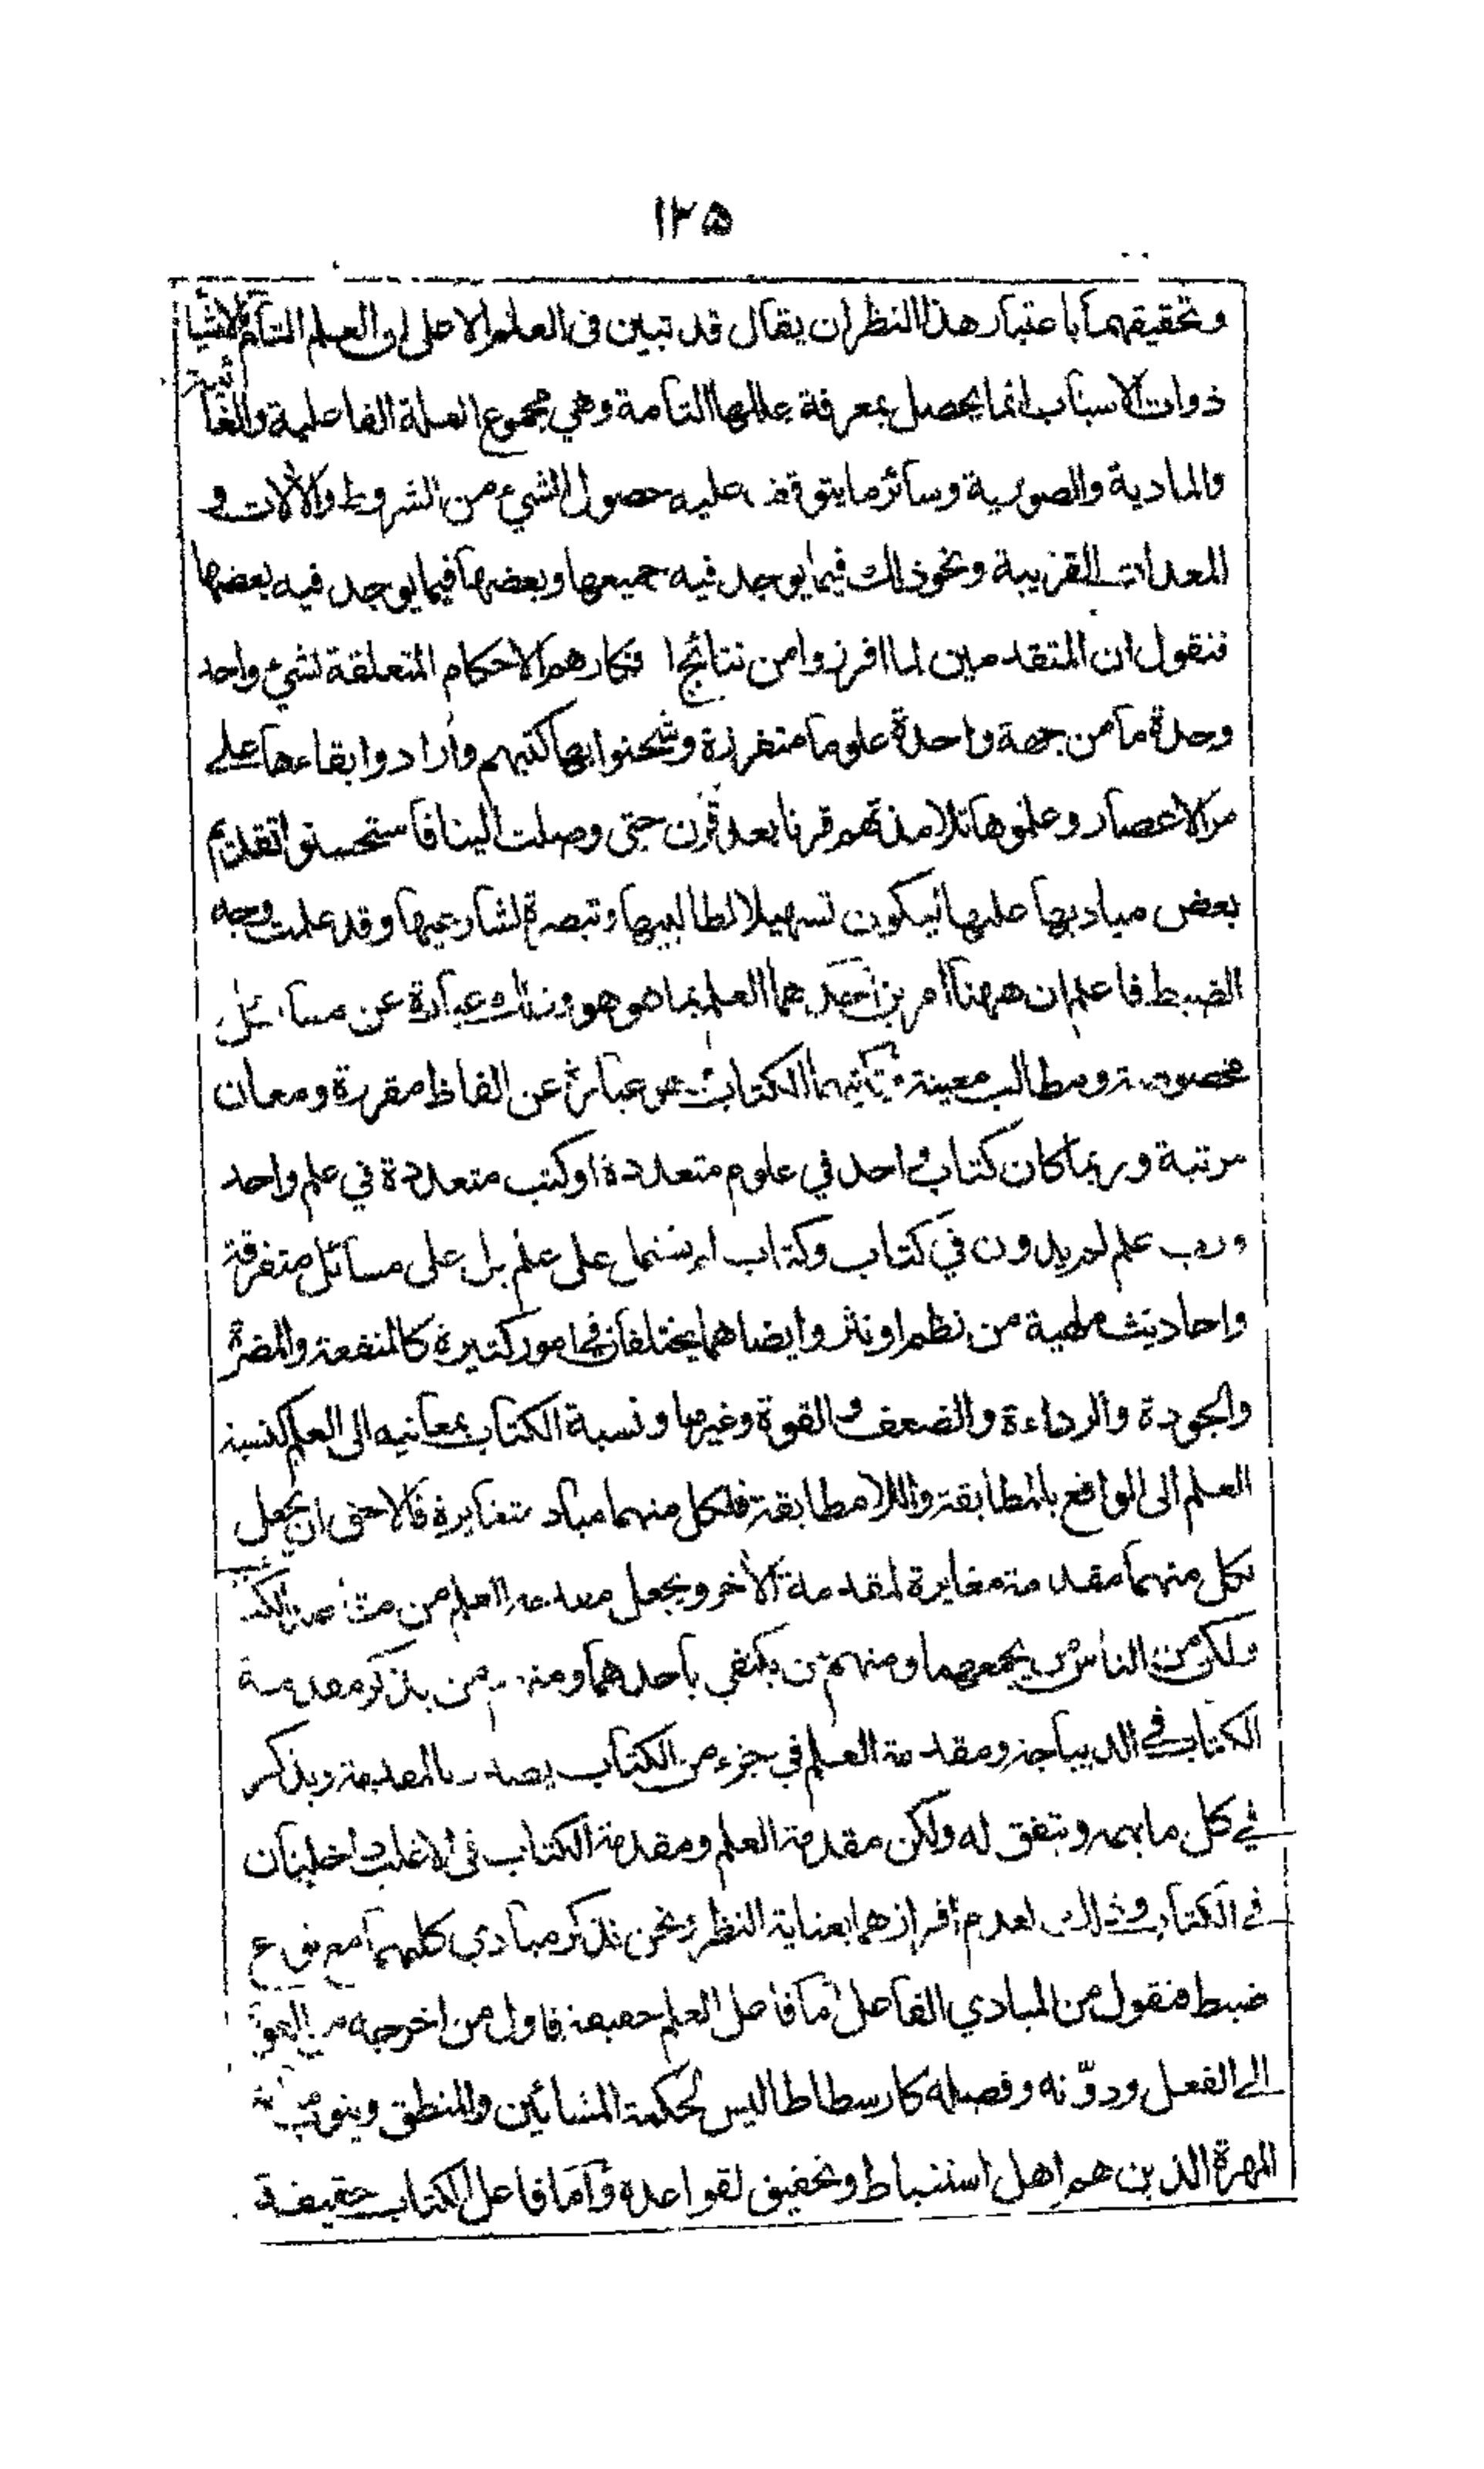 ١٢٥
وتحقيقهما باعتبار هذا النظر ان يقال قد تبين فى العلم الاعلى ان العلم التام بالاشياء
ذوات الاسباب انما يحصل بمعرفة عللها التامة وهي مجموع العلة الفاعلية والغائية
والمادية والصورية وسائر ما يتوقف عليه حصول الشيء من الشروط والآلات و
المعدات القريبة ونحو ذلك فيما يوجد فيه جميعها وبعضها فيما يوجد فيه بعضها
فنقول ان المتقدمين لما افرزوا من نتائج افكارهم الاحكام المتعلقة لشيء واحد
وحدة ما من جهة واحدة علوما متفرزة وشحنوا بها كتبهم وارادوا بقاءها على
مر الاعصار وعلموها تلامذتهم قرنا بعد قرن حتى وصلت الينا فاستحسنوا تقديم
بعض مباديها عليها ليكون تسهيلا لطالبيها وتبصرة لشارعيها وقد علمت وجه
الضبط فاعلم ان ههنا امرين احدهما العلم بما هو هو وذلك عبارة عن مسائل
مخصوصة ومطالب معينة وثانيهما الكتاب هو عبارة عن الفاظ مقررة ومعان
مرتبة وربما كان كتاب واحد في علوم متعددة او كتب متعددة في علم واحد
ورب علم لم يدون في كتاب وكتاب لم يشتمل على علم بل على مسائل متفرقة
واحاديث ملهية من نظم او نثر وايضا هما يختلفان في امور كثيرة كالمنفعة والمضرة
والجودة والرداءة والضعف والقوة وغيرها ونسبة الكتاب بمعانيه الى العلم كنسبة
العلم الى الواقع بالمطابقة واللامطابقة فلكل منهما مباد متغايرة فالاحق ان يجعل
لكل منهما مقدمة مغايرة لمقدمة الآخر ويجعل مقدمة العلم من مقاصد الكتاب
ولكن من الناس من يجمعهما ومنهم من يكتفي باحدهما ومنهم من يذكر مقدمة
الكتاب في الديباجة ومقدمة العلم في جزء من الكتاب يصدر بالمقدمة ويذكر
في كل ما يهمه ويتفق له ولكن مقدمة العلم ومقدمة الكتاب فى الاغلب داخليتان
فى الكتاب وذلك لعدم افرازهما بعناية النظر ونحن نذكر مبادي كليهما مع نوع
ضبط فنقول من المبادي الفاعل اما فاعل العلم حقيقة فاول من اخرجه من القوة
الى الفعل ودوّنه وفصله كارسطاطاليس لحكمة المشائين والمنطق
المهرة الذين هم اهل استنباط وتحقيق لقواعده واما فاعل الكتاب حقيقة